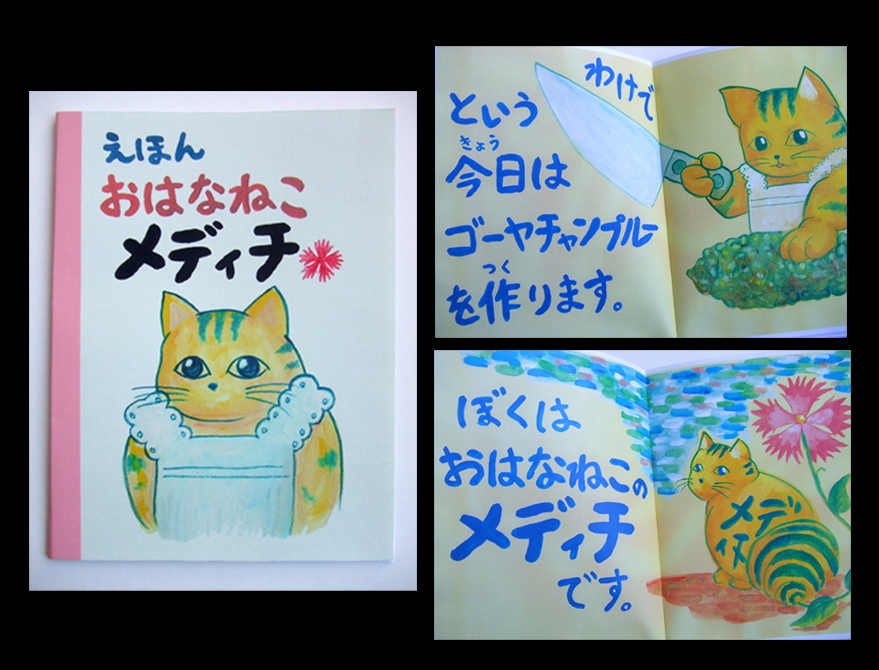 えほん
おはなねこ
メディチ
という
わけで
きょう
今日は
ゴーヤチャンプルー
つく
を作ります。
ぼくは
おはなねこの
メディチ
です。
メデ